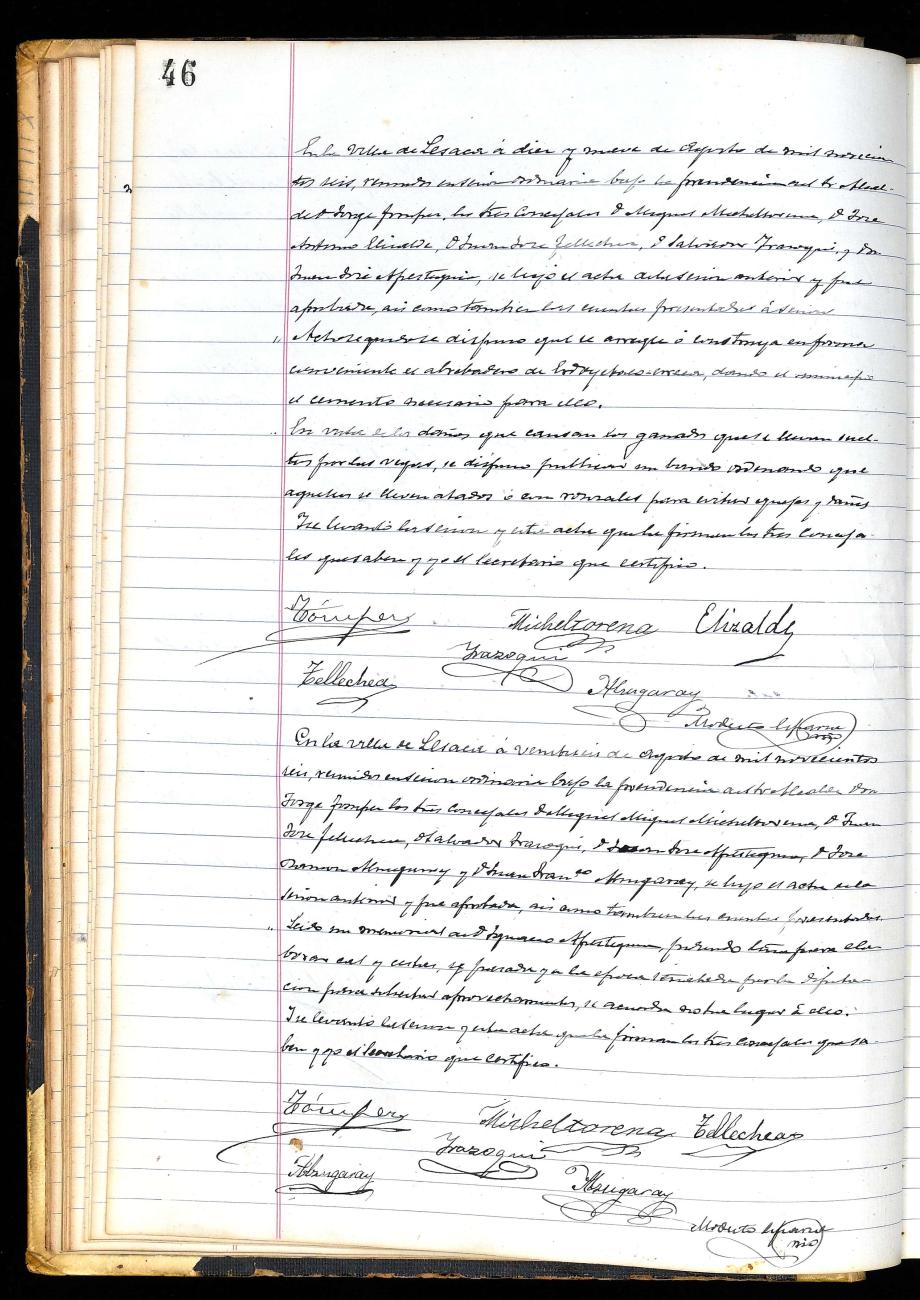 46
En la villa de Lesaca á diez y nueve de Agosto de mil novecien
tos seis, reunidos en sesion ordinaria bajo la presidencia del Sr Alcal-
de D Jorge los Sres Concejales D Miguel Micheltorena, D Jose
Antonio Elizalde, D Juan Jose Tellechea, D Salvador Irazoqui, y Don
Juan José Apesteguia, se leyó el acta de la sesion anterior y fue
aprobada, asi como tambien las cuentas presentadas á sesion
" Acto seguido se dispuso que se arregle ó construya en forma
conveniente el abrebadero de dando el municipio
el cemento necesario para ello.
" En vista de los daños que causan los ganados que se llevan suel-
tos por las vegas, se dispuso publicar un bando ordenando que
aquellos se lleven atados ó con ronzales para evitar quejas y daños
Y se levantó la sesion y esta acta que la firman los Sres Conceja-
les que saben y yo el Secretario que certifico.
Micheltorena Elizalde
Irazoqui
Tellechea
Almugaray
Modesto
En la villa de Lesaca á veintiseis de Agosto de mil novecientos
seis, reunidos en sesion ordinaria bajo la presidencia del Sr Alcalde Don
Jorge los Sres Concejales D Miguel Miguel Micheltorena, D Juan
José Tellechea, D Salvador Irazoqui, D Juan Jose Apesteguia, D José
Ramon Almugaray y D Juan Fran.co Almugaray, se leyó el acta de la
sesion anterior y fue aprobada, asi como tambien las cuentas presentadas.
" Leido un memorial de D Ignacio Apesteguia, pidiendo leña para ela
borar cal y pasada ya la epoca señalada por la diputa
cion para solicitar aprovechamientos, se acuerda no ha lugar á ello.
Y se levantó la sesion y esta acta que la firman los Sres Concejales que sa
ben y yo el Secretario que certifico.
Micheltorena Tellechea
Irazoqui
Almugaray
Almugaray
Modesto